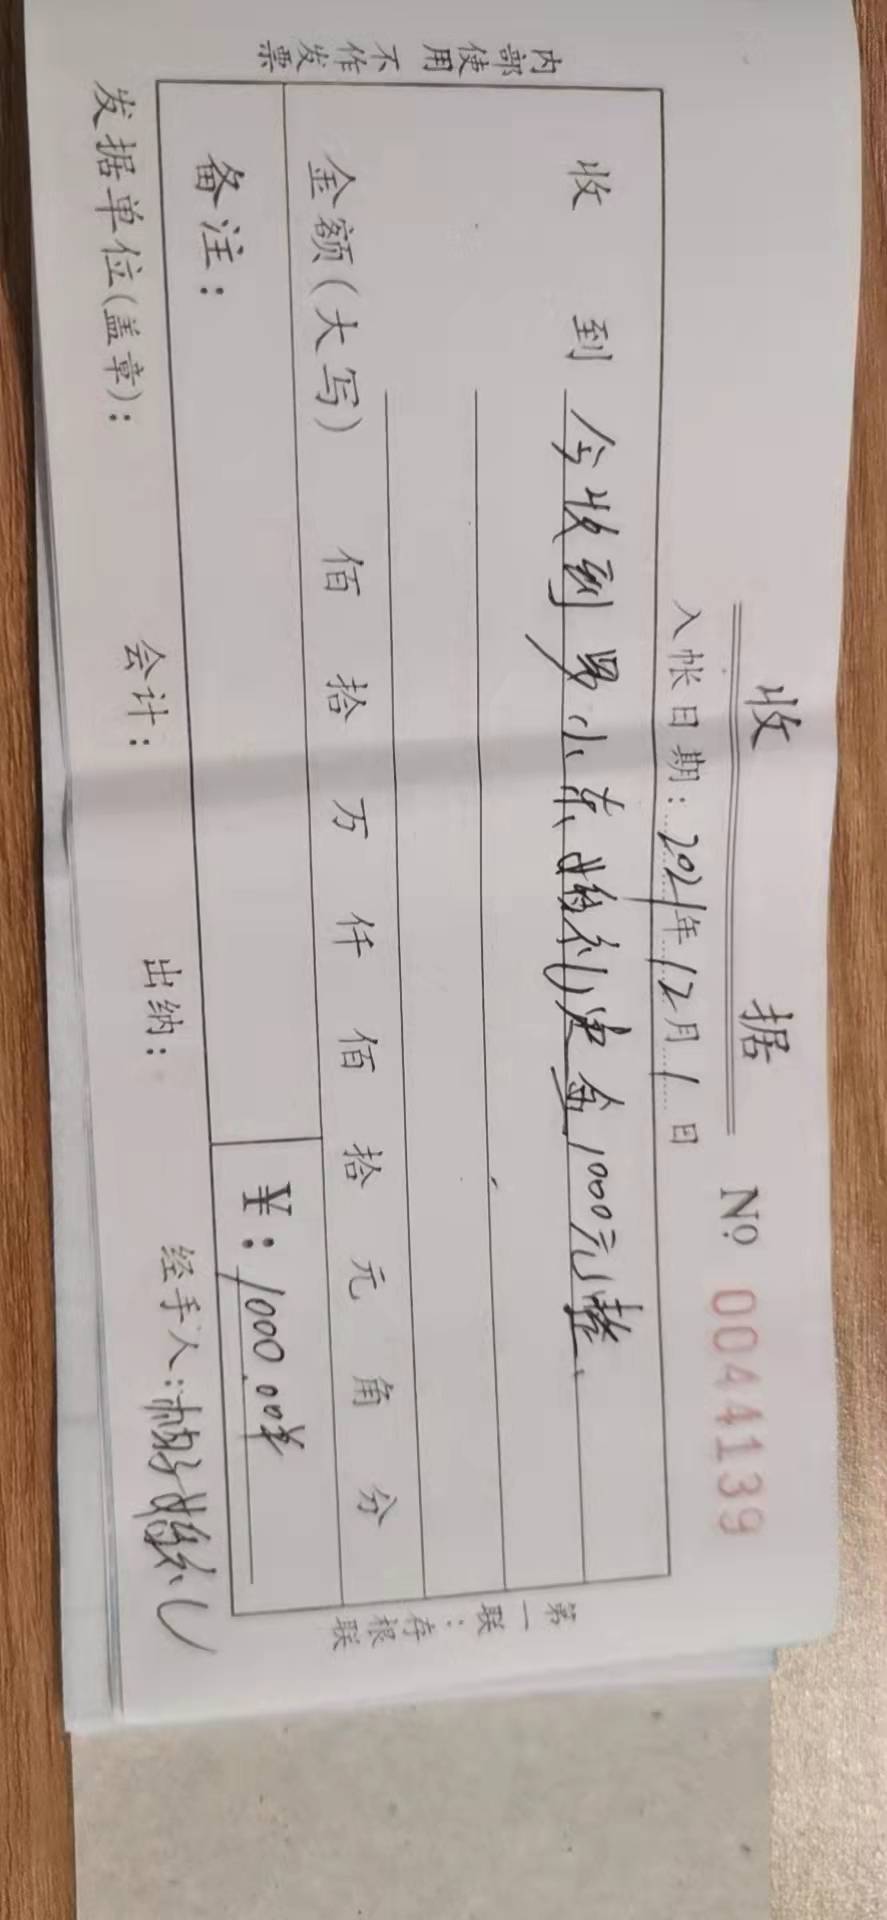 收 据
№ 0044139
入帐日期：2021年12月1日
收 到 今收到罗小东婚礼定金1000元整、
金额(大写) 佰 拾 万 仟 佰 拾 元 角 分
备注：
¥：1000.00
发据单位(盖章)： 会计： 出纳： 经手人：柚子婚礼
内部使用 不作发票
第一联：存根联